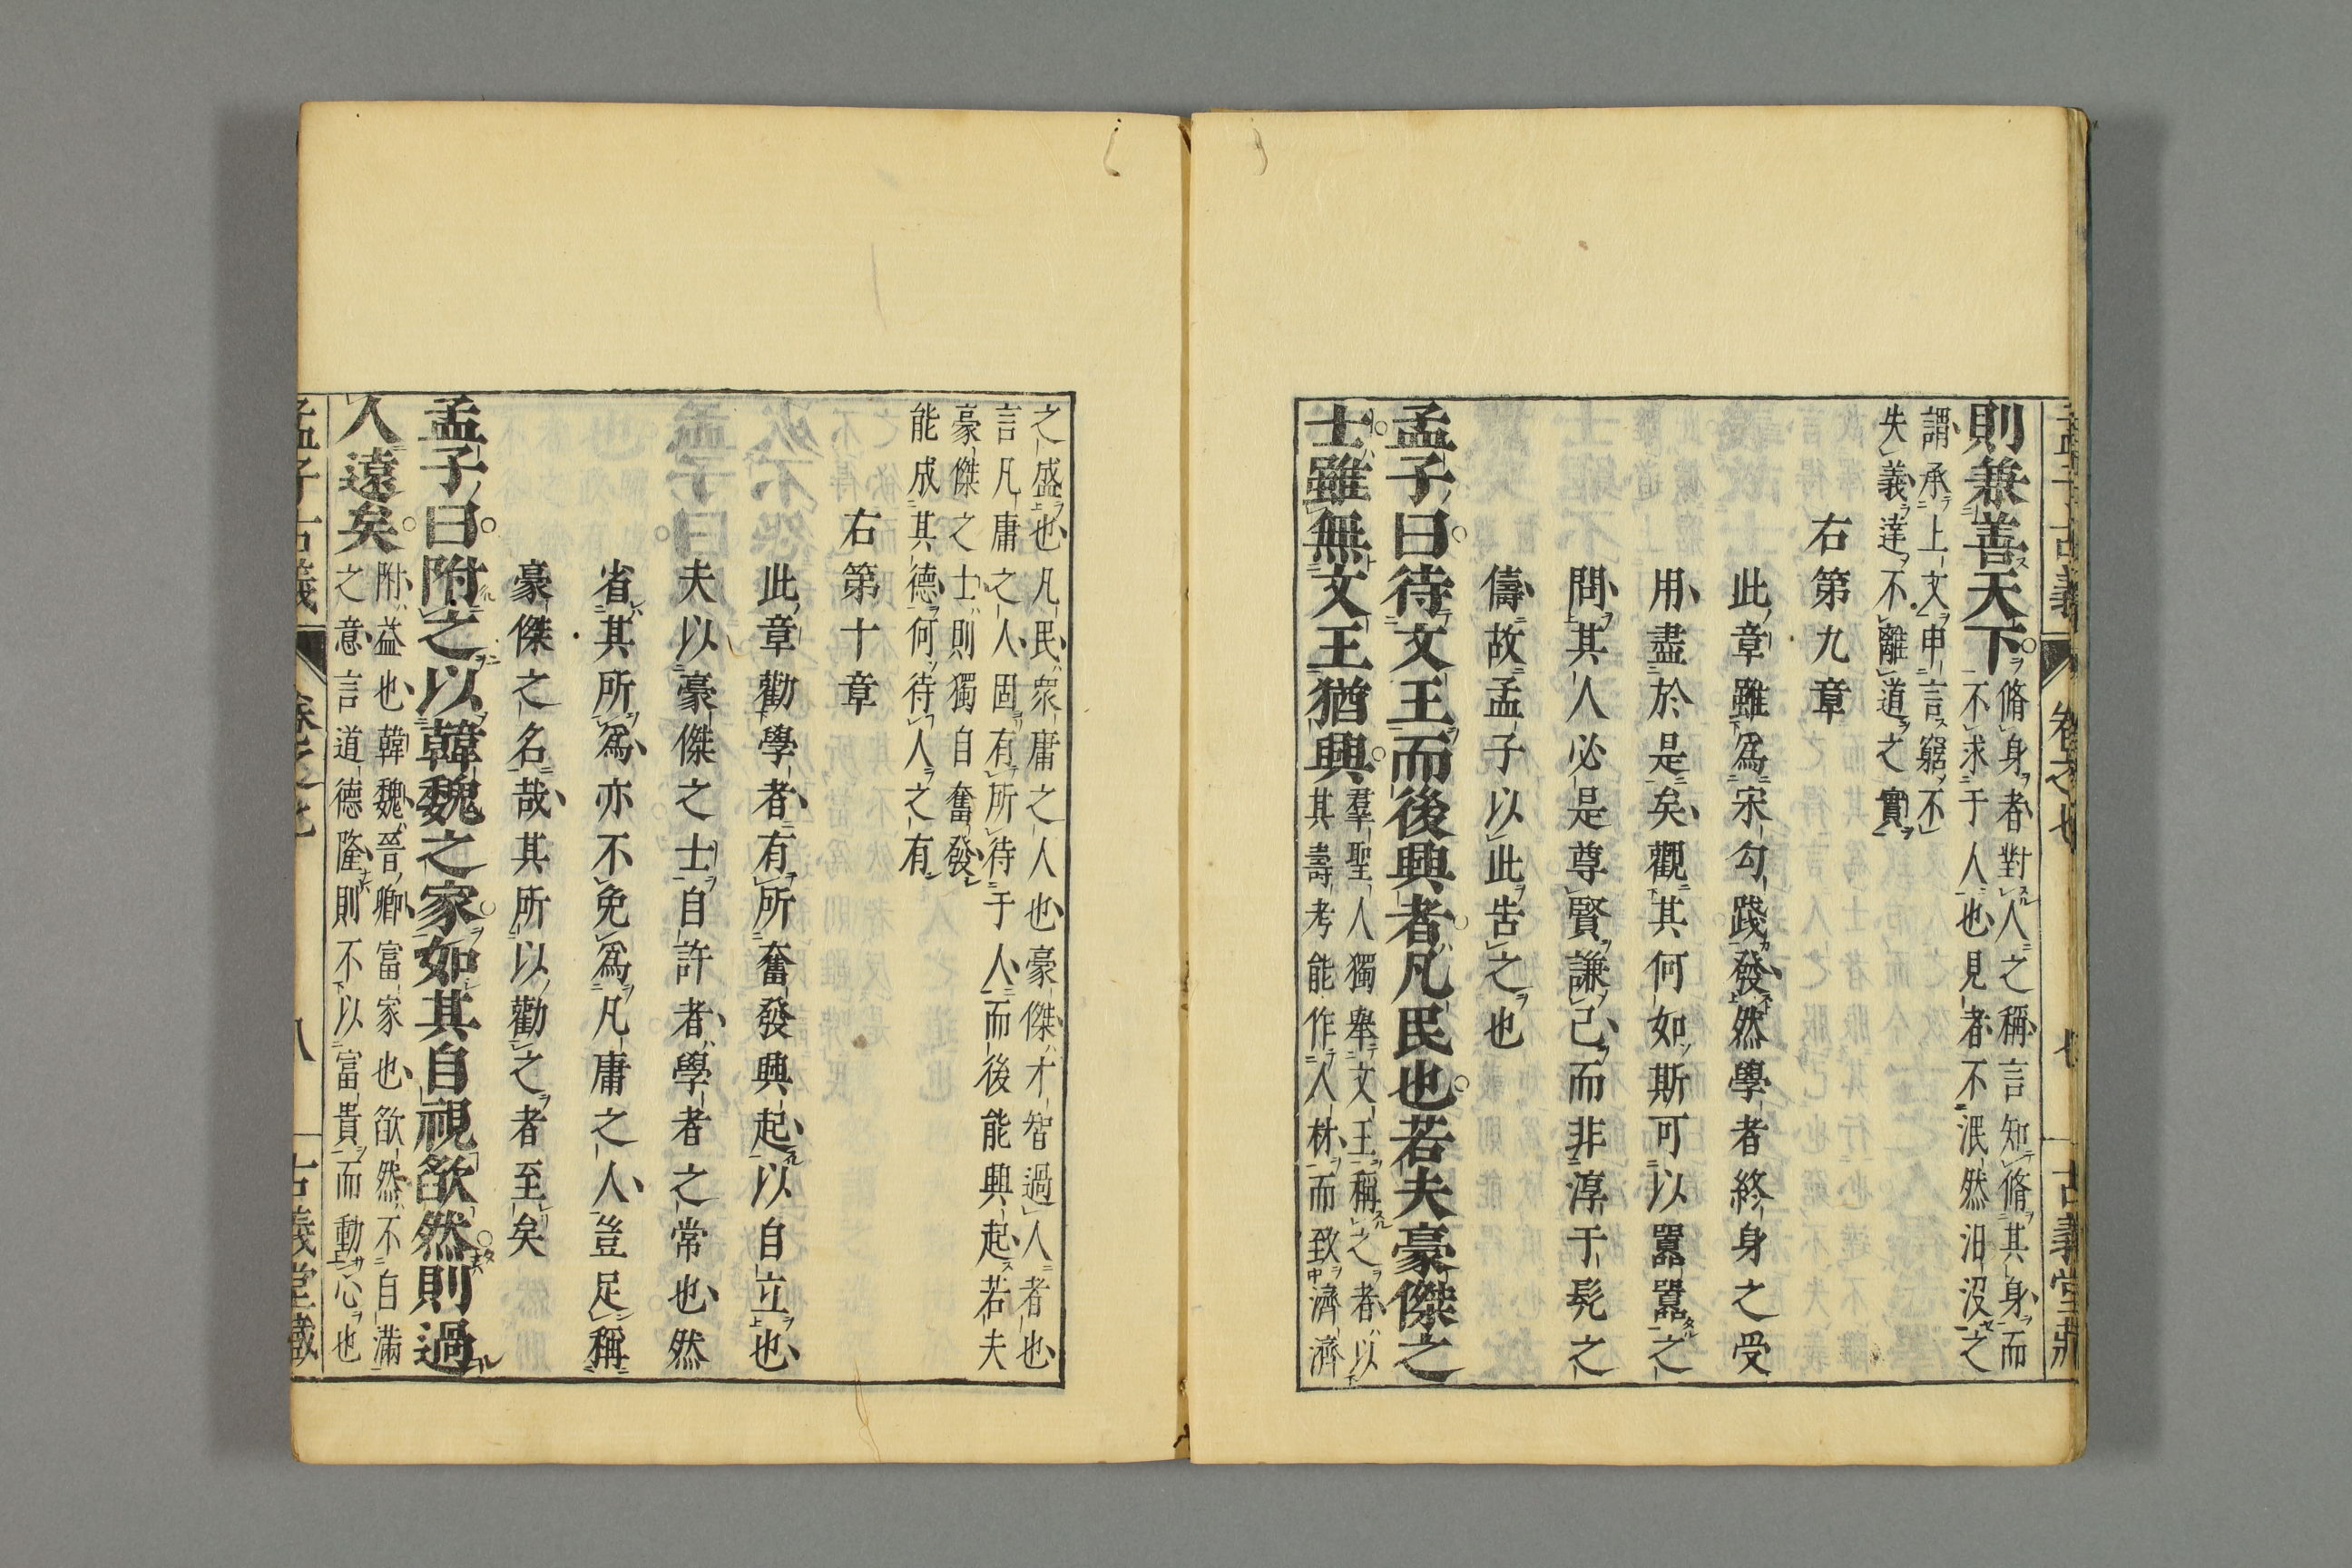 孟子古義
卷之七
七
古義堂藏
則兼善天下
脩身者對人之稱言知脩其身而
不求于人也見者不泯然汨沒之
謂承上文申言窮不
失義達不離道之實
右第九章
此章雖爲宋勾踐發然學者終身之受
用盡於是矣觀其何如斯可以囂囂之
問其人必是尊賢謙己而非淳于髡之
儔故孟子以此告之也
孟子曰待文王而後興者凡民也若夫豪傑之
士雖無文王猶興
羣聖人獨舉文王稱之者以
其壽考能作人材而致濟濟
之盛也凡民衆庸之人也豪傑才智過人者也
言凡庸之人固有所待于人而後能興起若夫
豪傑之士則獨自奮發
能成其德何待人之有
右第十章
此章勸學者有所奮發興起以自立也
夫以豪傑之士自許者學者之常也然
省其所爲亦不免爲凡庸之人豈足稱
豪傑之名哉其所以勸之者至矣
孟子曰附之以韓魏之家如其自視欿然則過
人遠矣
附益也韓魏晉卿富家也欿然不自滿
之意言道德隆則不以富貴而動心也
孟子古義
卷之七
八
古義堂藏